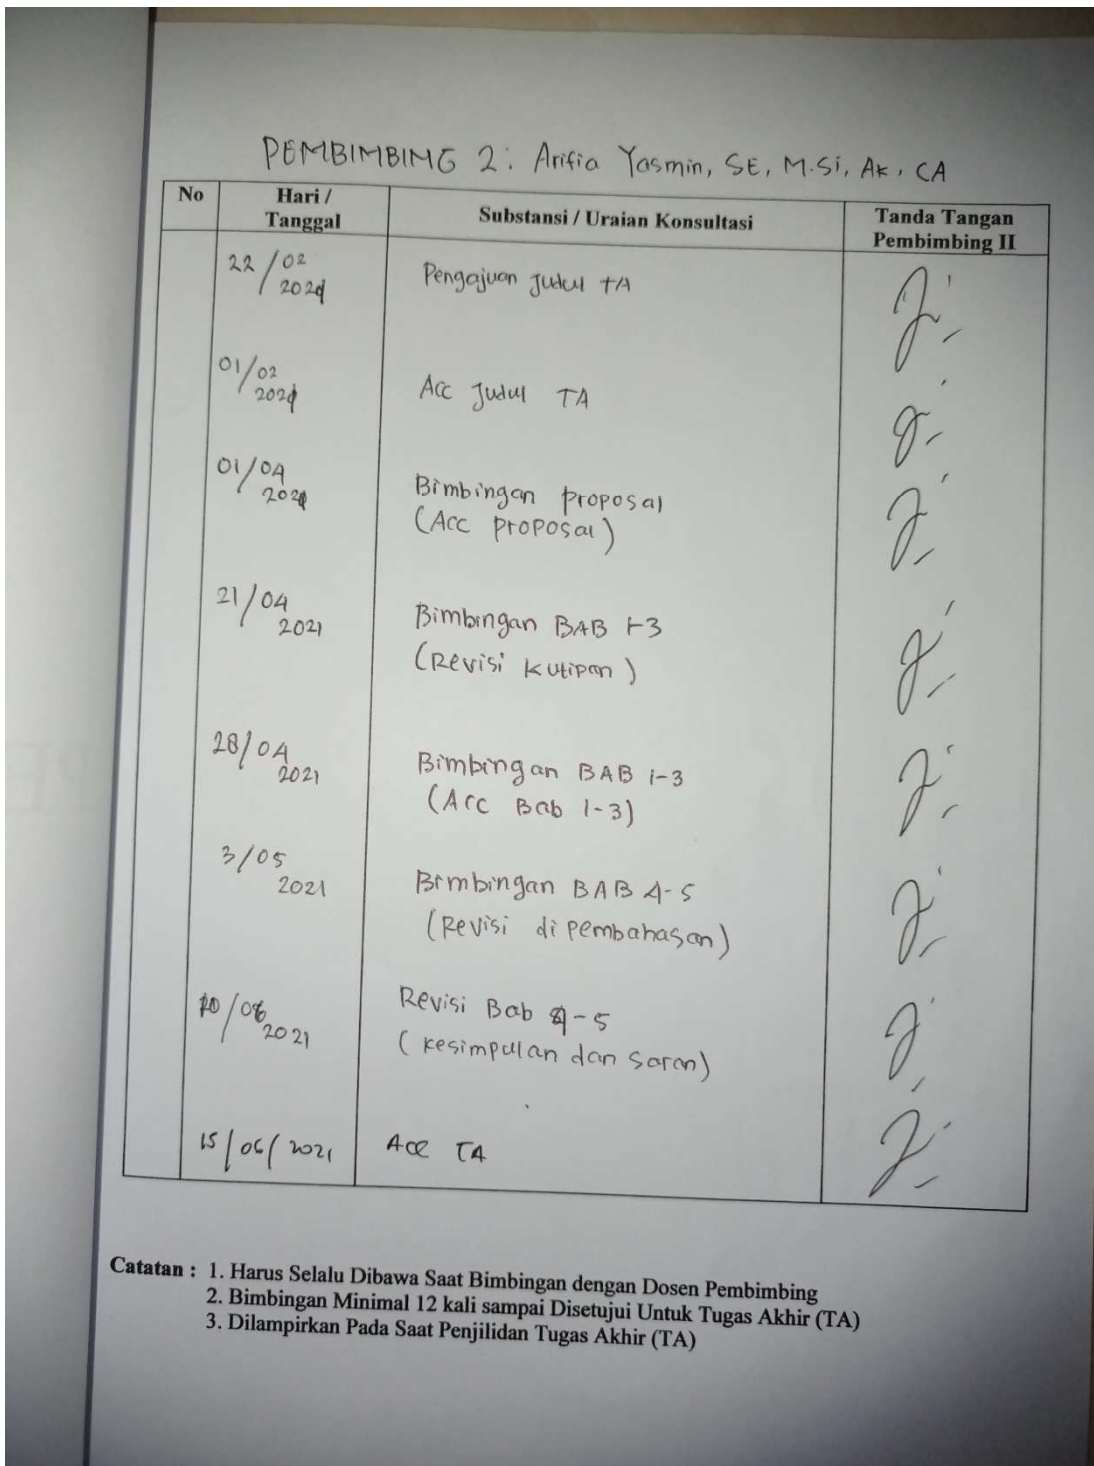 PEMBIMBING 2: Arifia Yasmin, SE, M.Si, Ak, CA
No Hari / Tanggal Substansi / Uraian Konsultasi Tanda Tangan Pembimbing II
22/02 2021 Pengajuan Judul TA
01/02 2021 Acc Judul TA
01/04 2021 Bimbingan proposal
(Acc proposal)
21/04 2021 Bimbingan BAB 1-3
(Revisi kutipan)
28/04 2021 Bimbingan BAB 1-3
(Acc Bab 1-3)
3/05 2021 Bimbingan BAB 4-5
(Revisi di pembahasan)
2021 Revisi Bab 4-5
(kesimpulan dan saran)
15/06/2021 Acc TA
Catatan : 1. Harus Selalu Dibawa Saat Bimbingan dengan Dosen Pembimbing
2. Bimbingan Minimal 12 kali sampai Disetujui Untuk Tugas Akhir (TA)
3. Dilampirkan Pada Saat Penjilidan Tugas Akhir (TA)